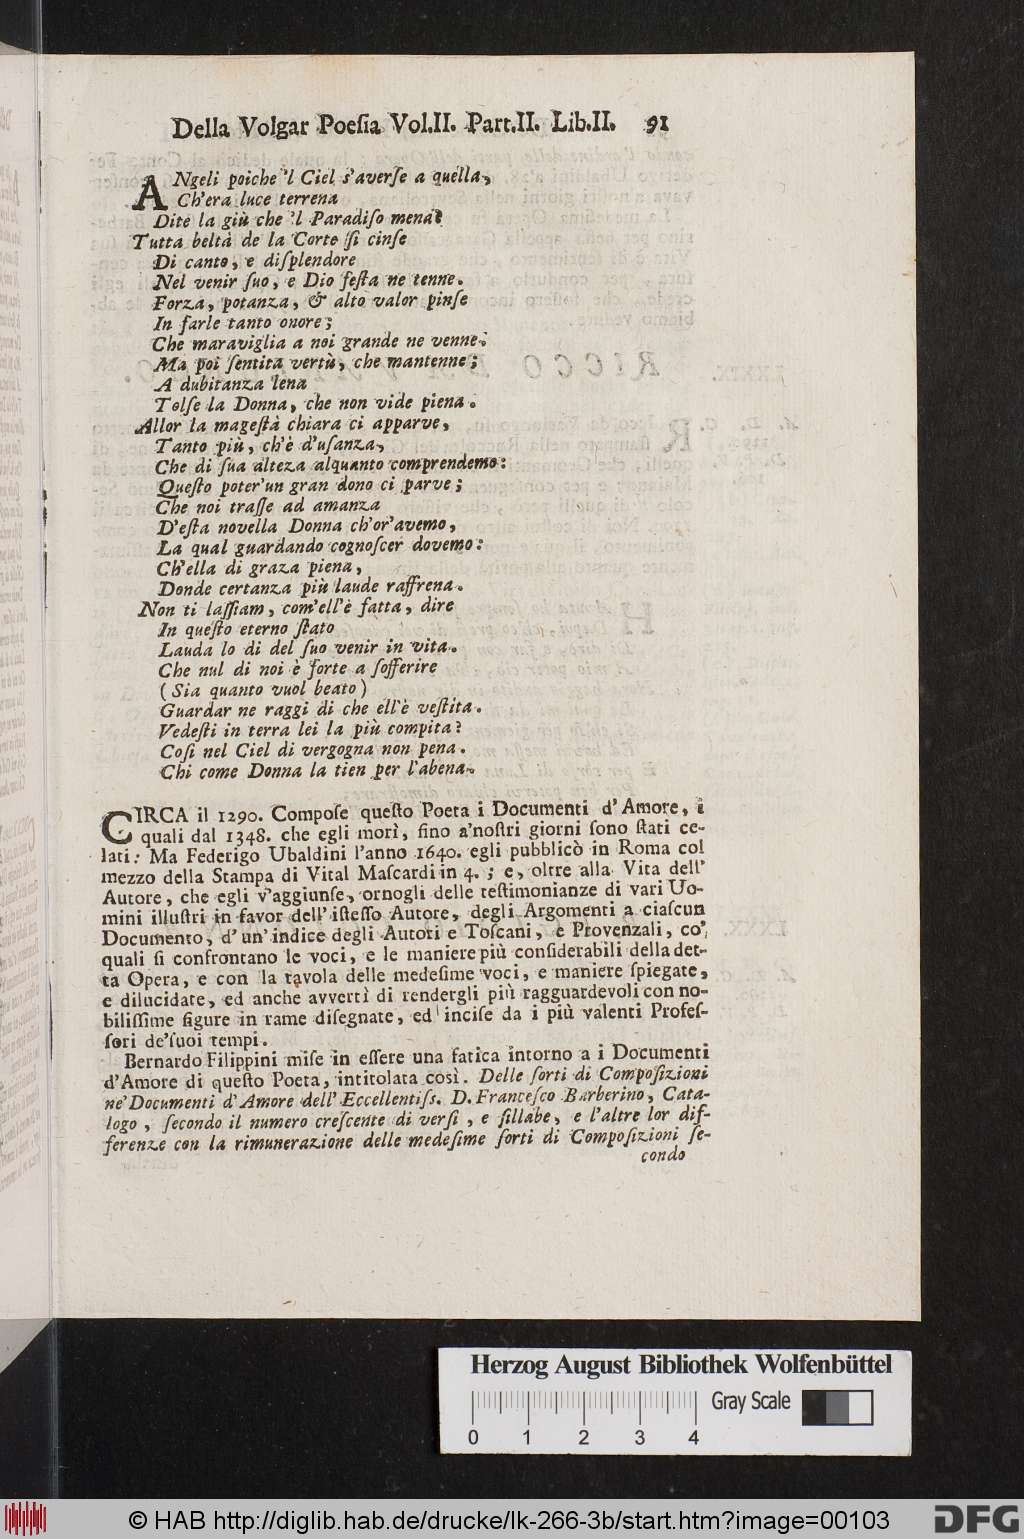 Della Volgar Poeſia Vol.II. Part.II. Lib.II. 91
ANgeli poiche 'l Ciel s'averſe a quella,
Ch'era luce terrena
Dite la giù che 'l Paradiſo mena?
Tutta beltà de la Corte ſi cinſe
Di canto, e diſplendore
Nel venir ſuo, e Dio feſta ne tenne.
Forza, potanza, & alto valor pinſe
In farle tanto onore;
Che maraviglia a noi grande ne venne:
Ma poi ſentita vertù, che mantenne;
A dubitanza lena
Tolſe la Donna, che non vide piena.
Allor la mageſtà chiara ci apparve,
Tanto più, ch'è d'uſanza,
Che di ſua alteza alquanto comprendemo:
Queſto poter'un gran dono ci parve;
Che noi traſſe ad amanza
D'eſta novella Donna ch'or'avemo,
La qual guardando cognoſcer dovemo:
Ch'ella di graza piena,
Donde certanza più laude raffrena.
Non ti laſſiam, com'ell'è fatta, dire
In queſto eterno ſtato
Lauda lo di del ſuo venir in vita.
Che nul di noi è forte a ſofferire
(Sia quanto vuol beato)
Guardar ne raggi di che ell'è veſtita.
Vedeſti in terra lei la più compita?
Coſi nel Ciel di vergogna non pena.
Chi come Donna la tien per l'abena.
CIRCA il 1290. Compoſe queſto Poeta i Documenti d'Amore, i
quali dal 1348. che egli morì, fino a'noſtri giorni ſono ſtati ce-
lati: Ma Federigo Ubaldini l'anno 1640. egli pubblicò in Roma col
mezzo della Stampa di Vital Maſcardi in 4.; e, oltre alla Vita dell'
Autore, che egli v'aggiunſe, ornogli delle teſtimonianze di vari Uo-
mini illuſtri in favor dell'iſteſſo Autore, degli Argomenti a ciaſcun
Documento, d'un'indice degli Autori e Toſcani, e Provenzali, co',
quali ſi confrontano le voci, e le maniere più conſiderabili della det-
ta Opera, e con la tavola delle medeſime voci, e maniere ſpiegate,
e dilucidate, ed anche avvertì di rendergli più ragguardevoli con no-
biliſſime figure in rame diſegnate, ed inciſe da i più valenti Profeſ-
ſori de'ſuoi tempi.
Bernardo Filippini miſe in eſſere una fatica intorno a i Documenti
d'Amore di queſto Poeta, intitolata così. Delle ſorti di Compoſizioni
ne'Documenti d'Amore dell'Eccellentiſs. D. Franceſco Barberino, Cata-
logo, ſecondo il numero creſcente di verſi, e ſillabe, e l'altre lor dif-
ferenze con la rimunerazione delle medeſime ſorti di Compoſizioni ſe-
condo
Herzog August Bibliothek Wolfenbüttel
Gray Scale
0 1 2 3 4
© HAB http://diglib.hab.de/drucke/lk-266-3b/start.htm?image=00103
DFG